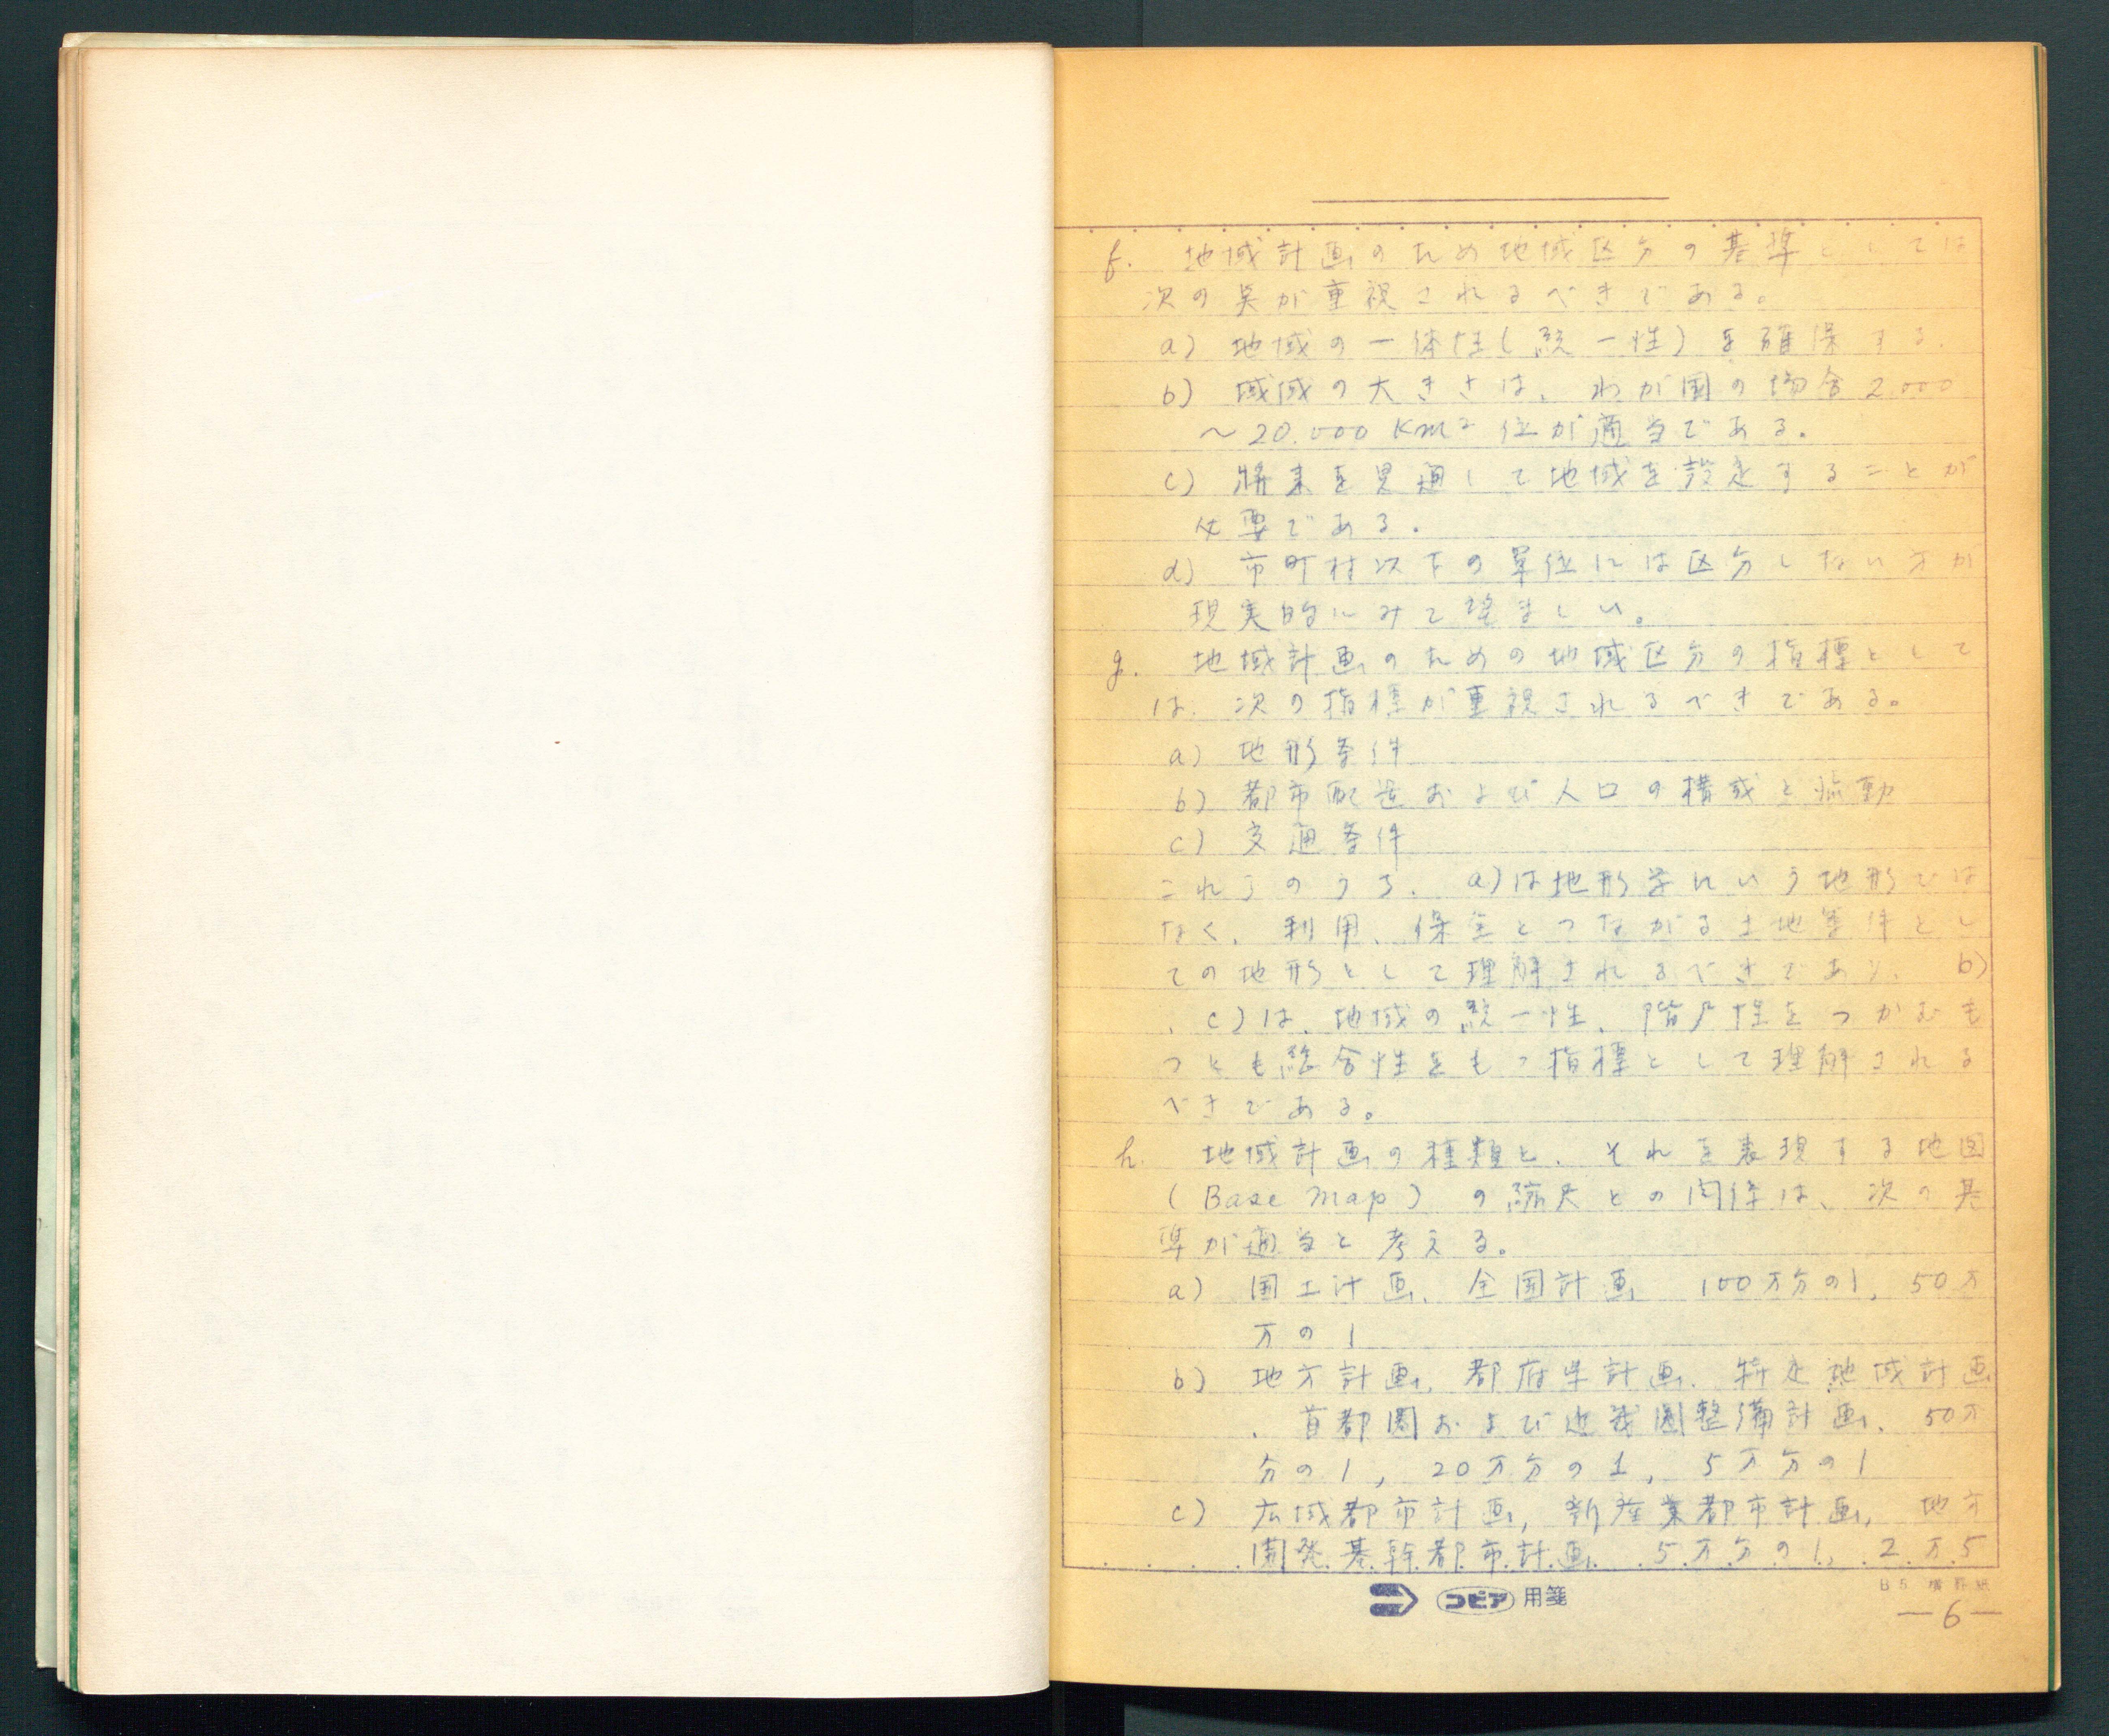 f. 地域計画のため地域区分の基準としては
次の点が重視されるべきである。
a) 地域の一体性(統一性)を確保する.
b) 域域の大きさは、わが国の場合2.000
～20.000 Km² 位が適当である。
c) 将来を見通して地域を設定することが
必要である。
d) 市町村以下の単位には区分しない方が
現実的にみて望ましい。
g. 地域計画のための地域区分の指標として
は、次の指標が重視されるべきである。
a) 地形条件
b) 都市配置および人口の構成と流動
c) 交通条件
これらのうち、a)は地形学にいう地形では
なく、利用、保全とつながる土地条件とし
ての地形として理解されるべきであり、b)
、c)は、地域の統一性、階層性をつかむも
っとも総合性をもつ指標として理解される
べきである。
h. 地域計画の種類と、それを表現する地図
(Base map) の縮尺との関係は、次の基
準が適当と考える。
a) 国土計画、全国計画 100万分の1, 50万
万の1
b) 地方計画、都府県計画、特定地域計画
、首都圏および近畿圏整備計画、50万
分の1, 20万分の1, 5万分の1
c) 広域都市計画, 新産業都市計画, 地方
開発基幹都市計画 5万分の1, 2万5
コピア 用箋
B5 横罫紙
—6—